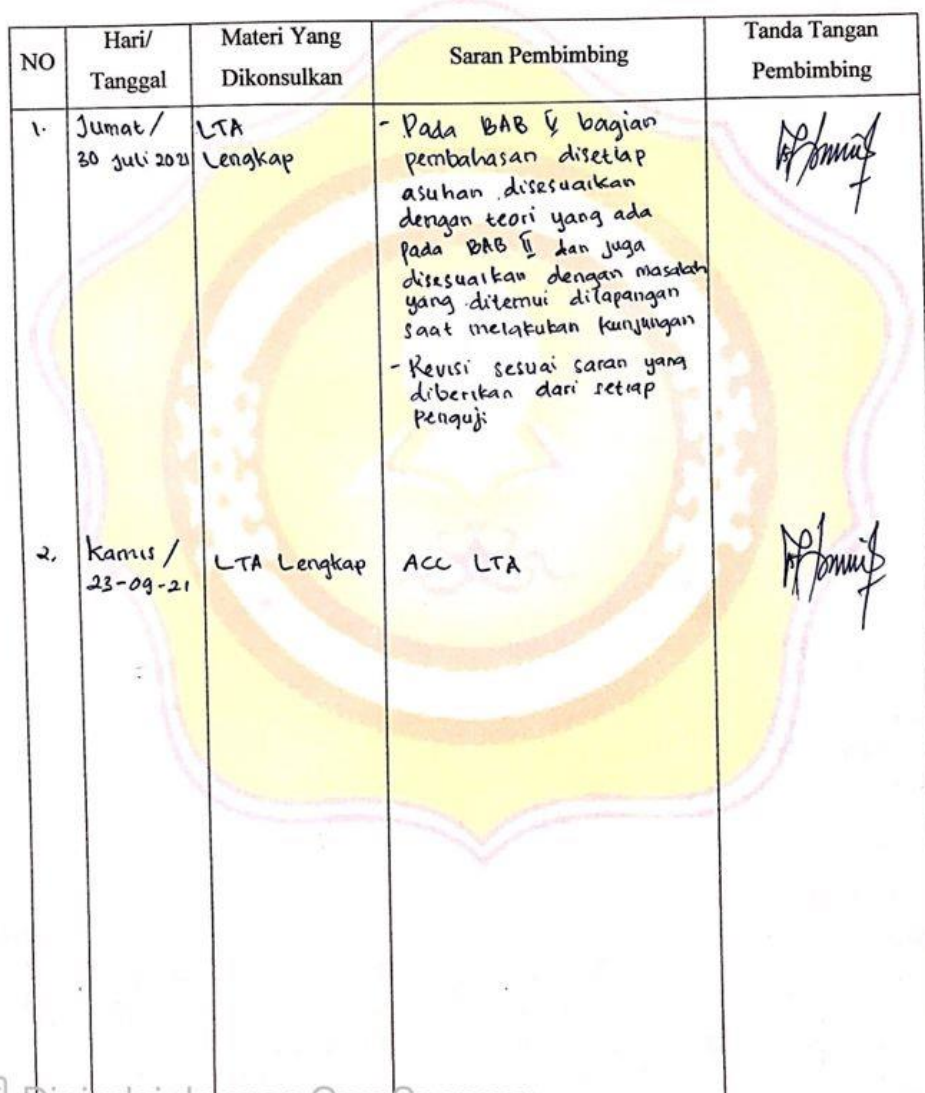 NO
Hari/
Tanggal
Materi Yang
Dikonsulkan
Saran Pembimbing
Tanda Tangan
Pembimbing
1.
Jumat/
30 Juli 2021
LTA
Lengkap
- Pada BAB V bagian
pembahasan disetiap
asuhan disesuaikan
dengan teori yang ada
pada BAB II dan juga
disesuaikan dengan masalah
yang ditemui dilapangan
saat melakukan kunjungan
- Revisi sesuai saran yang
diberikan dari setiap
penguji
2.
Kamis /
23-09-21
LTA Lengkap
ACC LTA